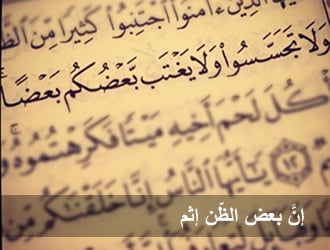 ءامنوا اجتنبوا كثيرا من الظن
ولا تجسسوا ولا يغتب بعضكم بعضا
أكل لحم أخيه ميتا فكرهتموه
١٢ يٰأيها الناس إنا خلقنٰكم من
إنَّ بعض الظّن إثم